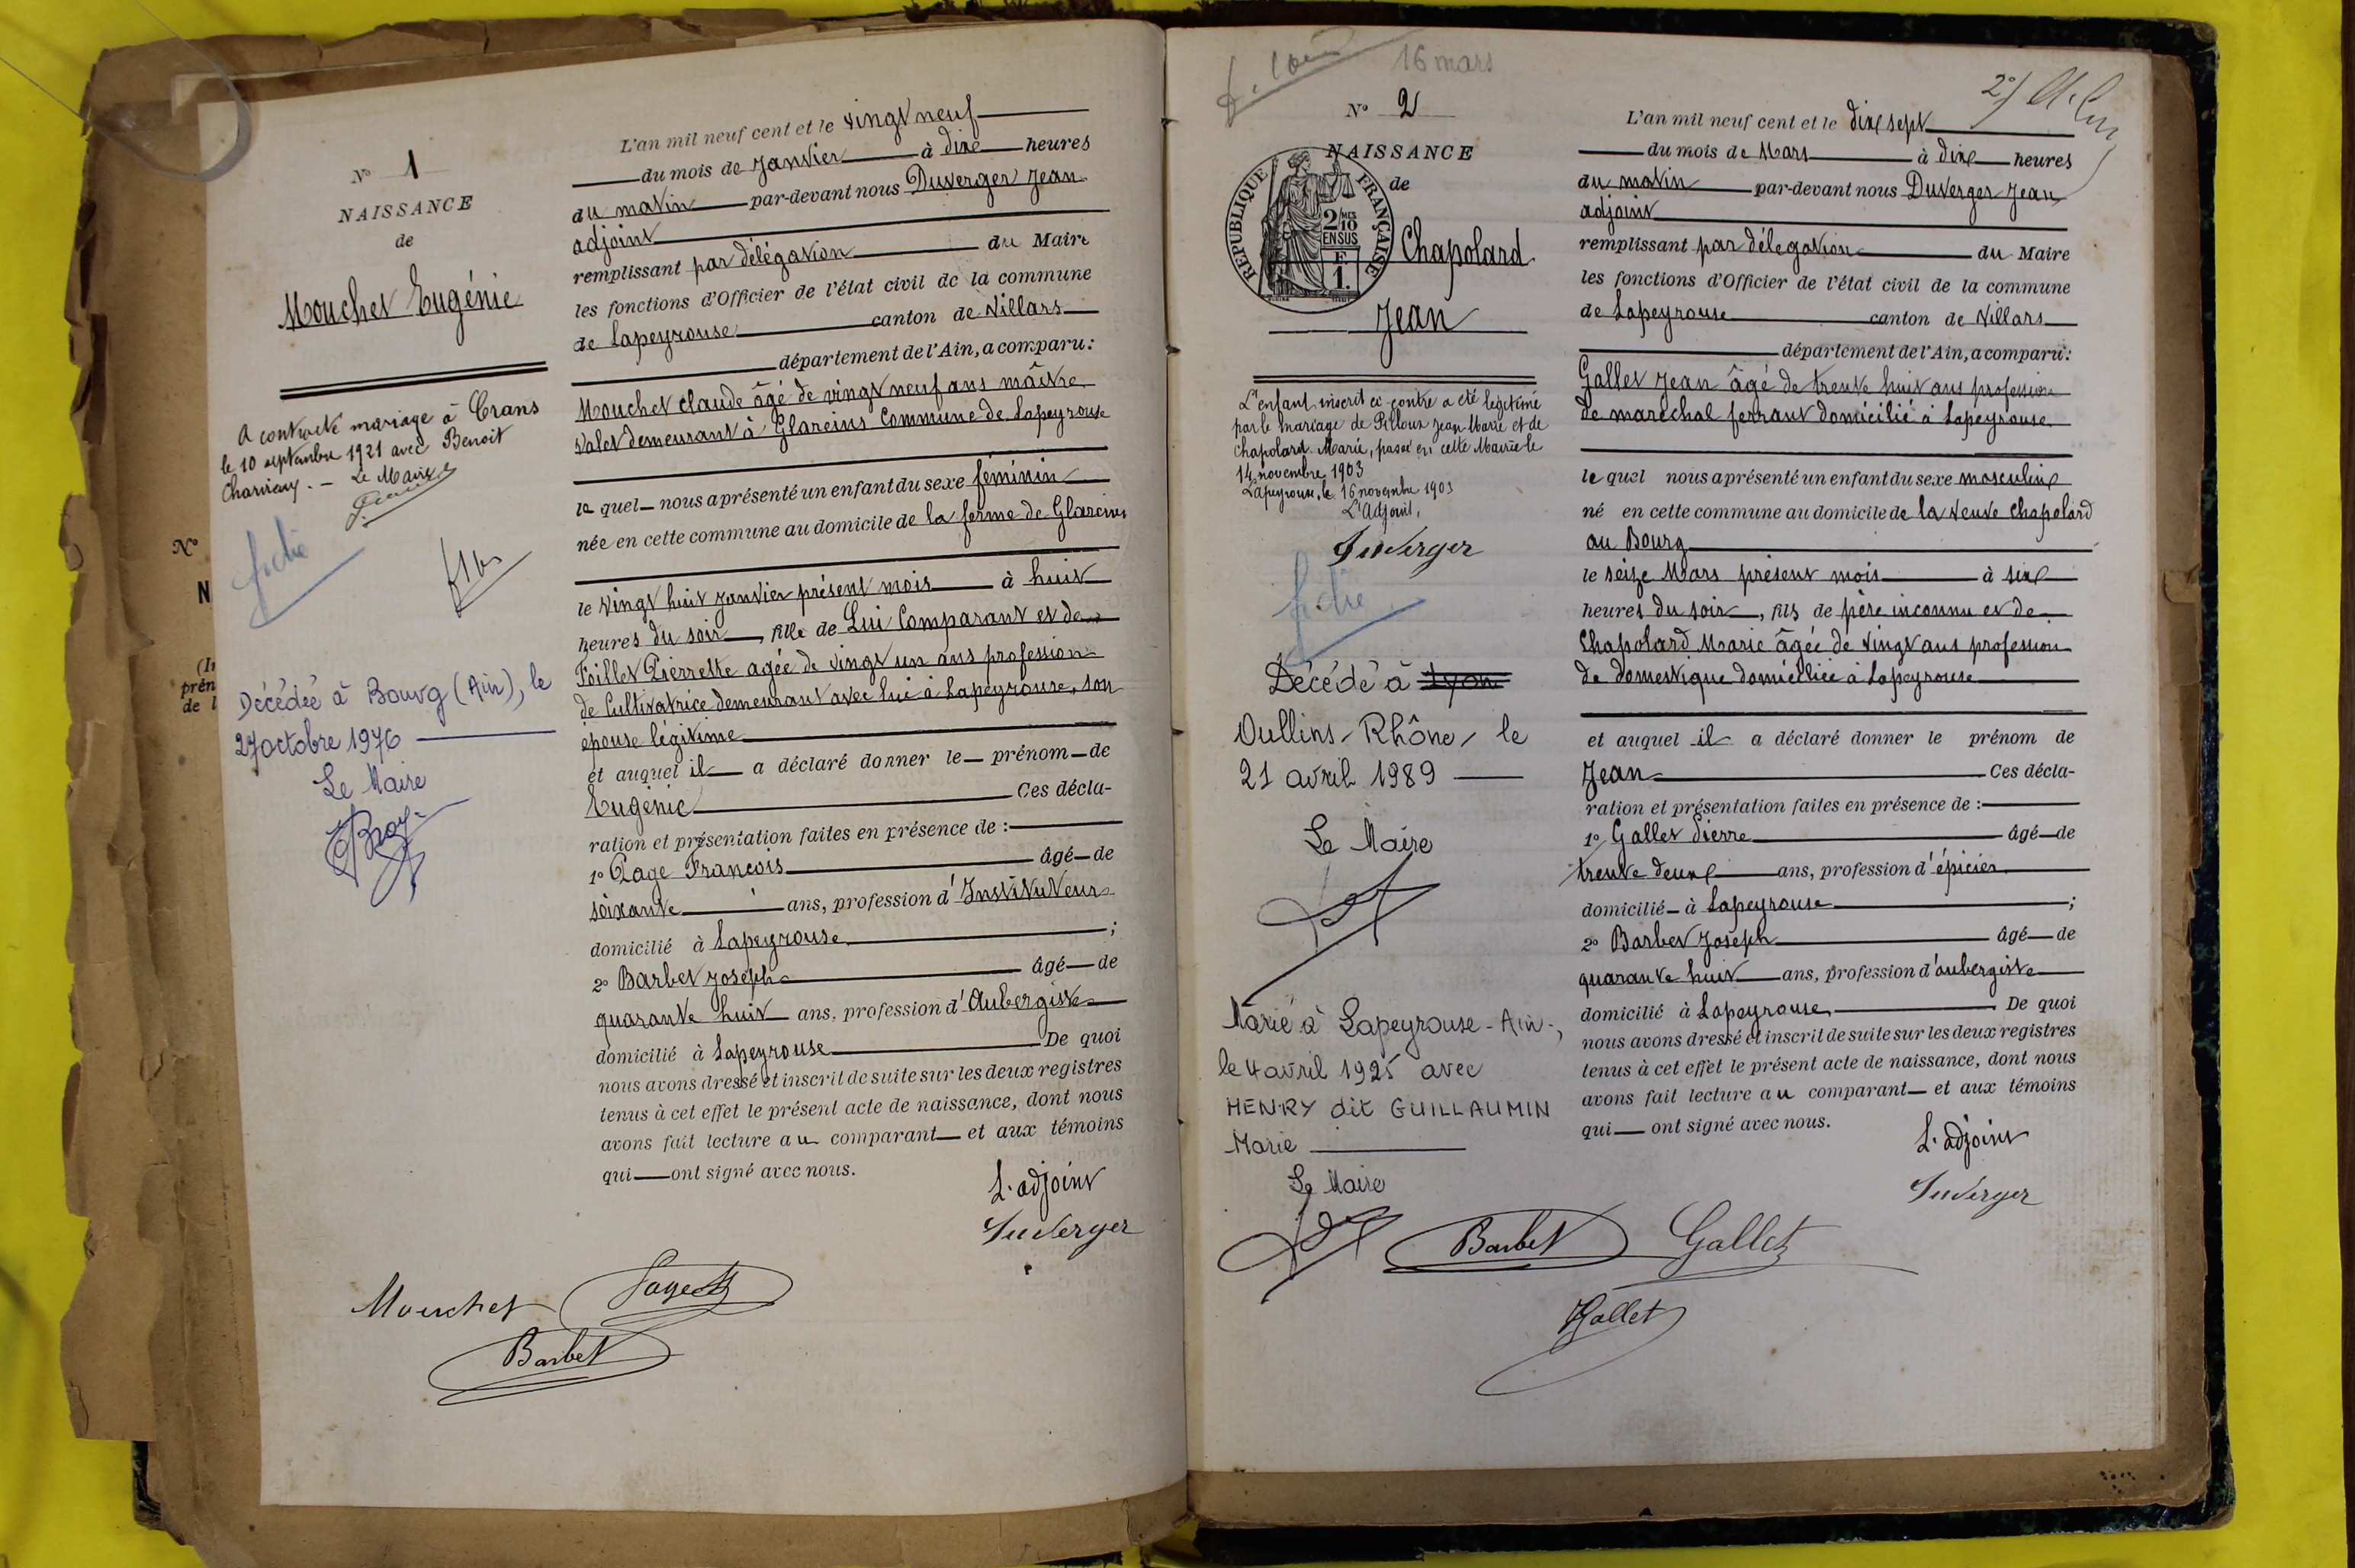 N° 1
NAISSANCE
de
Mouchet Eugénie
A contracté mariage à Crans
le 10 septembre 1921 avec Benoit
Charvieux. — Le Maire
fiche
Décédée à Bourg (Ain), le
27 octobre 1976
Le Maire
N°
N
(I
prén
de l
L'an mil neuf cent et le vingt neuf
du mois de Janvier à dix heures
du matin par-devant nous Duverger Jean
adjoint
remplissant par délégation du Maire
les fonctions d'Officier de l'état civil de la commune
de Lapeyrouse canton de Villars
département de l'Ain, a comparu:
Mouchet Claude âgé de vingt neuf ans maître
valet demeurant à Glareins Commune de Lapeyrouse
le quel nous a présenté un enfant du sexe féminin
née en cette commune au domicile de la ferme de Glareins
le vingt huit Janvier présent mois à huit
heures du soir, fille de Lui Comparant et de
Foillet Pierrette agée de vingt un ans profession
de Cultivatrice demeurant avec lui à Lapeyrouse, son
épouse légitime
et auquel il a déclaré donner le prénom de
Eugénie Ces décla-
ration et présentation faites en présence de :
1° Page François âgé de
soixante ans, profession d'Instituteur
domicilié à Lapeyrouse ;
2° Barbet Joseph âgé de
quarante huit ans, profession d'Aubergiste
domicilié à Lapeyrouse De quoi
nous avons dressé et inscrit de suite sur les deux registres
tenus à cet effet le présent acte de naissance, dont nous
avons fait lecture au comparant et aux témoins
qui ont signé avec nous.
L'adjoint
Duverger
Mouchet Page
Barbet
16 mars
N° 2
NAISSANCE
de
RÉPUBLIQUE FRANÇAISE
2/MES
10
EN SUS
F.
1.
Chapolard
Jean
L'enfant inscrit ci-contre a été légitimé
par le mariage de Pilloux Jean-Marie et de
Chapolard Marie, passé en cette Mairie le
14 novembre 1903
Lapeyrouse, le 16 novembre 1903
L'Adjoint,
Duverger
fiche
Décédé à Lyon
Oullins - Rhône, le
21 avril 1989
Le Maire
Marié à Lapeyrouse - Ain -,
le 4 avril 1925 avec
HENRY dit GUILLAUMIN
Marie
Le Maire
L'an mil neuf cent et le dix sept
du mois de Mars à dix heures
du matin par-devant nous Duverger Jean
adjoint
remplissant par délégation du Maire
les fonctions d'Officier de l'état civil de la commune
de Lapeyrouse canton de Villars
département de l'Ain, a comparu:
Gallet Jean âgé de trente huit ans profession
de maréchal ferrant domicilié à Lapeyrouse
le quel nous a présenté un enfant du sexe masculin
né en cette commune au domicile de la veuve Chapolard
au Bourg
le seize Mars présent mois à six
heures du soir, fils de père inconnu et de
Chapolard Marie âgée de vingt ans profession
de domestique domiciliée à Lapeyrouse
et auquel il a déclaré donner le prénom de
Jean Ces décla-
ration et présentation faites en présence de :
1° Gallet Pierre âgé de
trente deux ans, profession d'épicier
domicilié à Lapeyrouse ;
2° Barbet Joseph âgé de
quarante huit ans, profession d'aubergiste
domicilié à Lapeyrouse De quoi
nous avons dressé et inscrit de suite sur les deux registres
tenus à cet effet le présent acte de naissance, dont nous
avons fait lecture au comparant et aux témoins
qui ont signé avec nous.
L'adjoint
Duverger
Barbet Gallet
Gallet